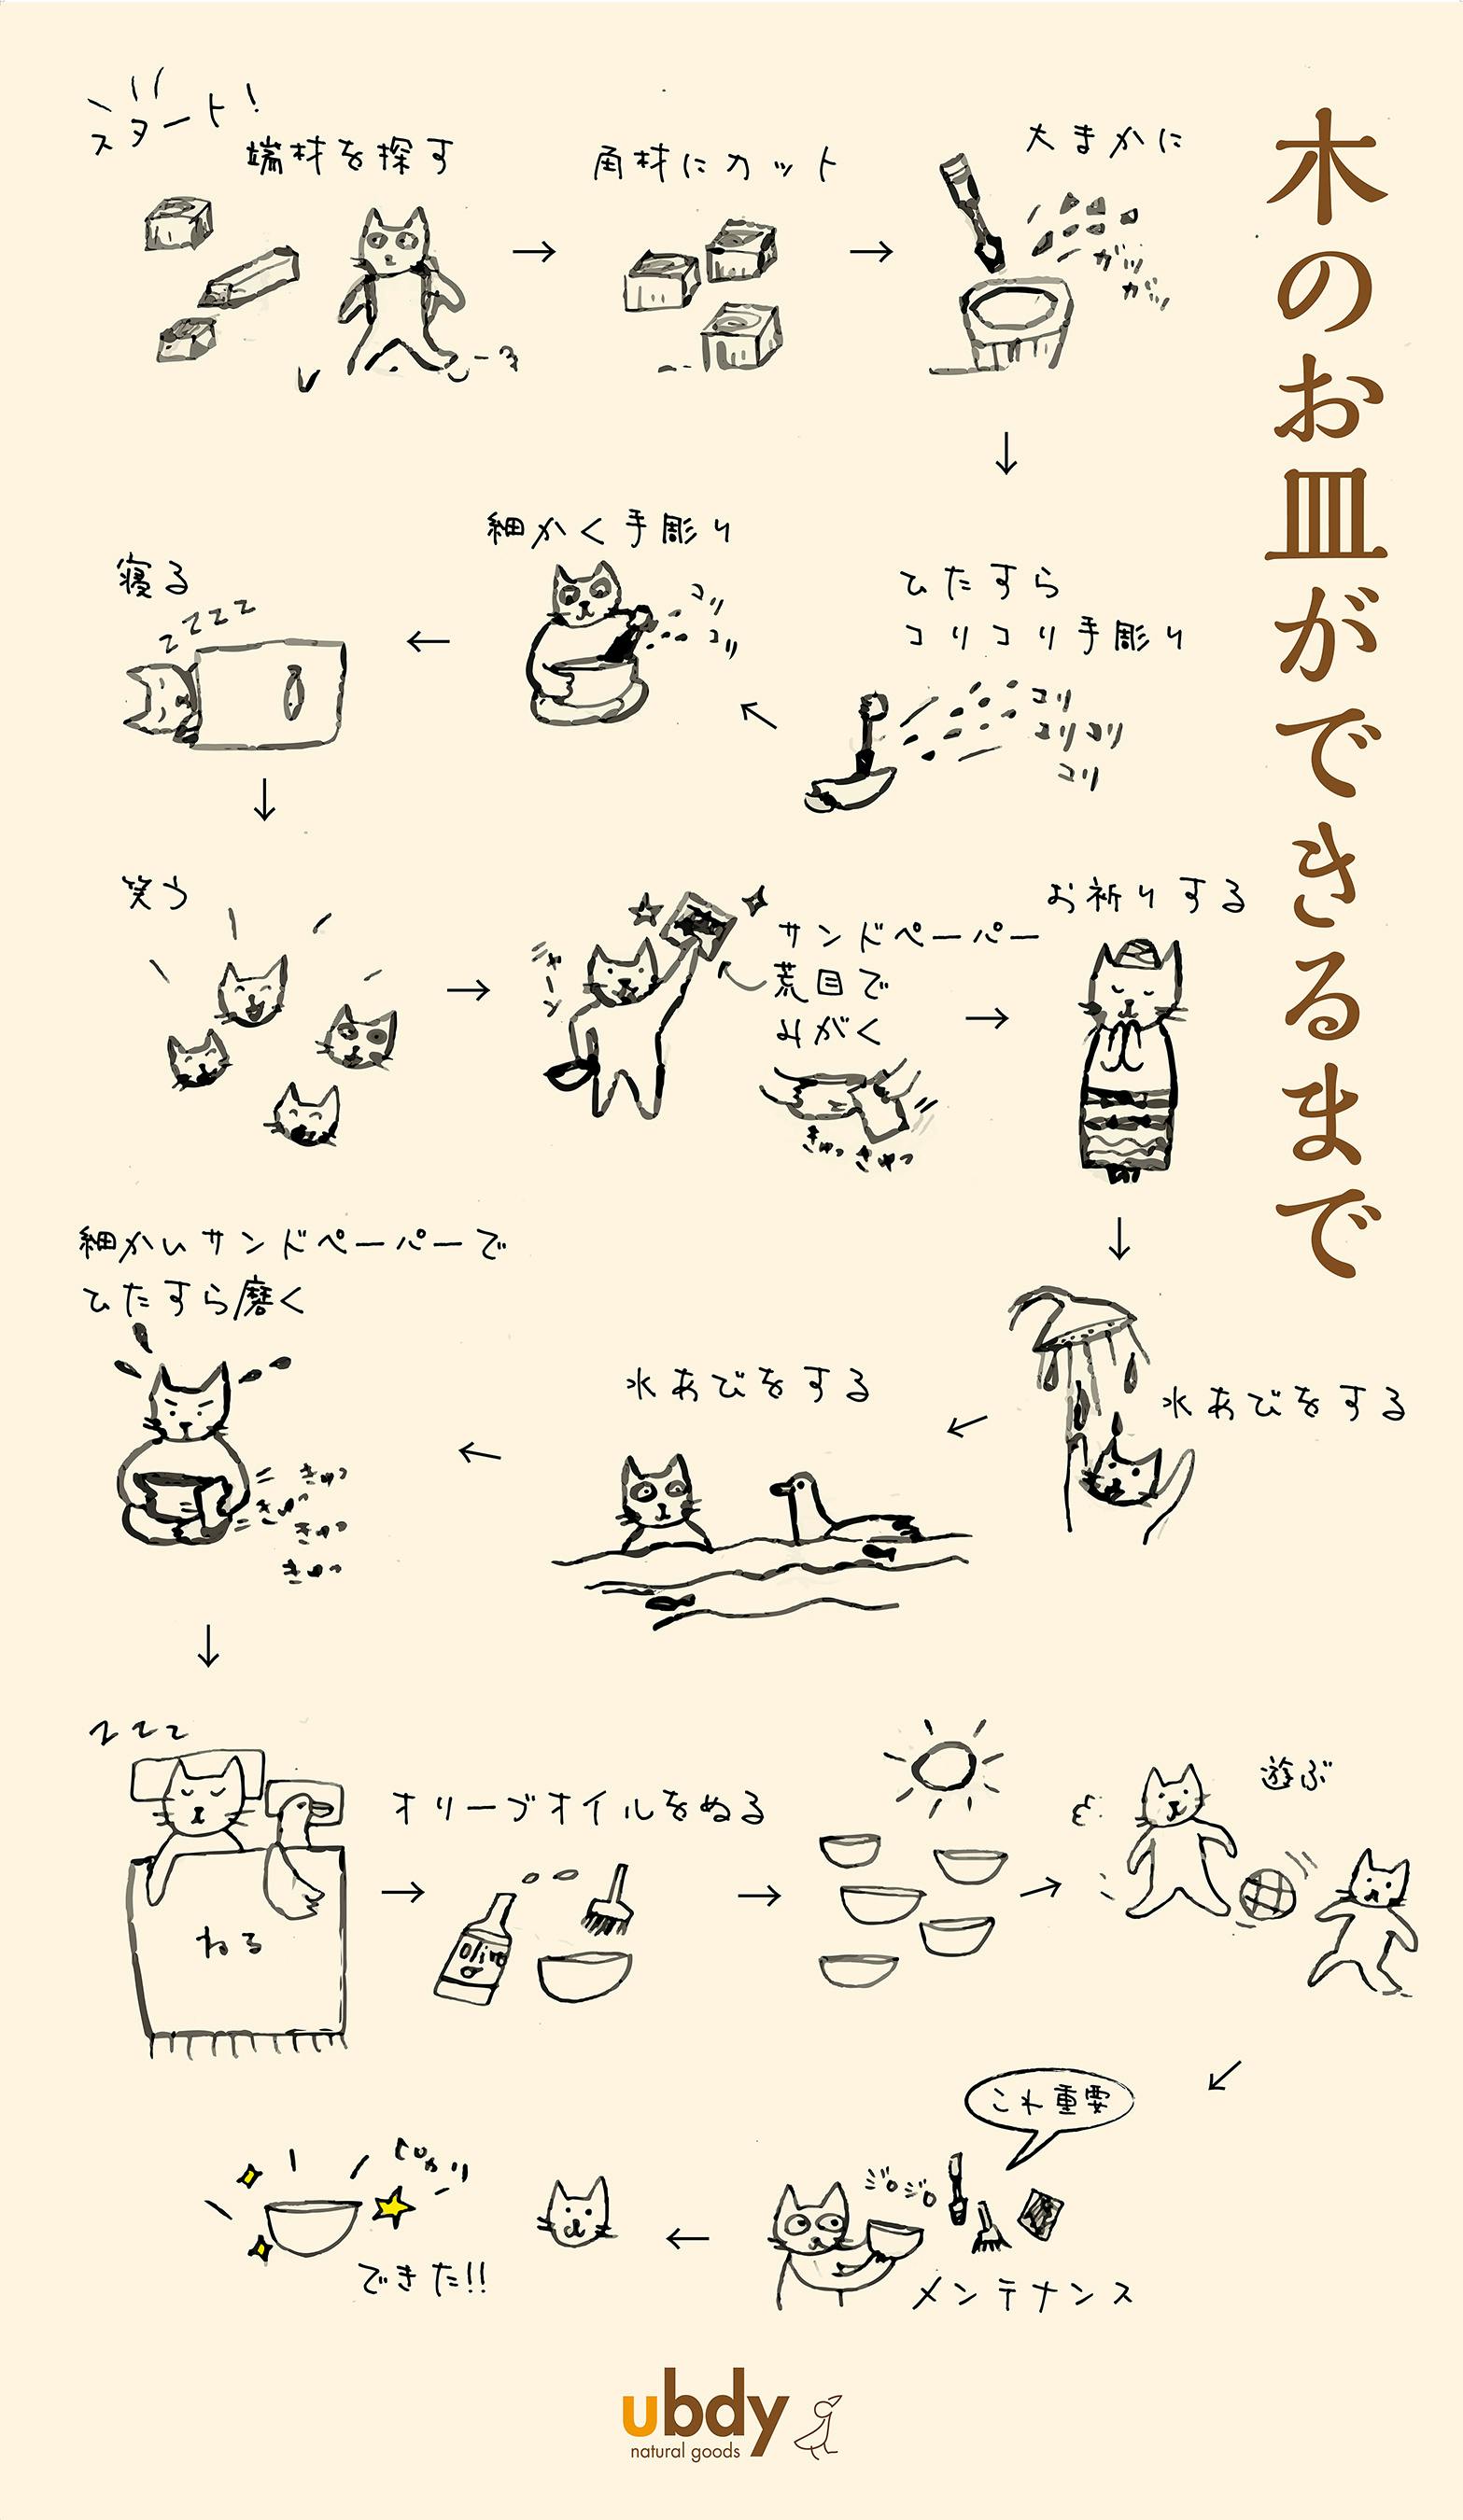 木のお皿ができるまで
スタート!
端材を探す
角材にカット
大まかに
ガッ
ガッ
ひたすら
コリコリ手彫り
コリ
コリコリ
コリ
細かく手彫り
コリ
コリ
寝る
zzzz
笑う
サンドペーパー
荒目で
みがく
きゅっ きゅっ
お祈りする
水あびをする
水あびをする
細かいサンドペーパーで
ひたすら磨く
きゅっ
きゅっ
きゅっ
きゅっ
zzz
ねる
オリーブオイルをぬる
遊ぶ
これ重要
ジロジロ
メンテナンス
できた!!
ubdy
natural goods